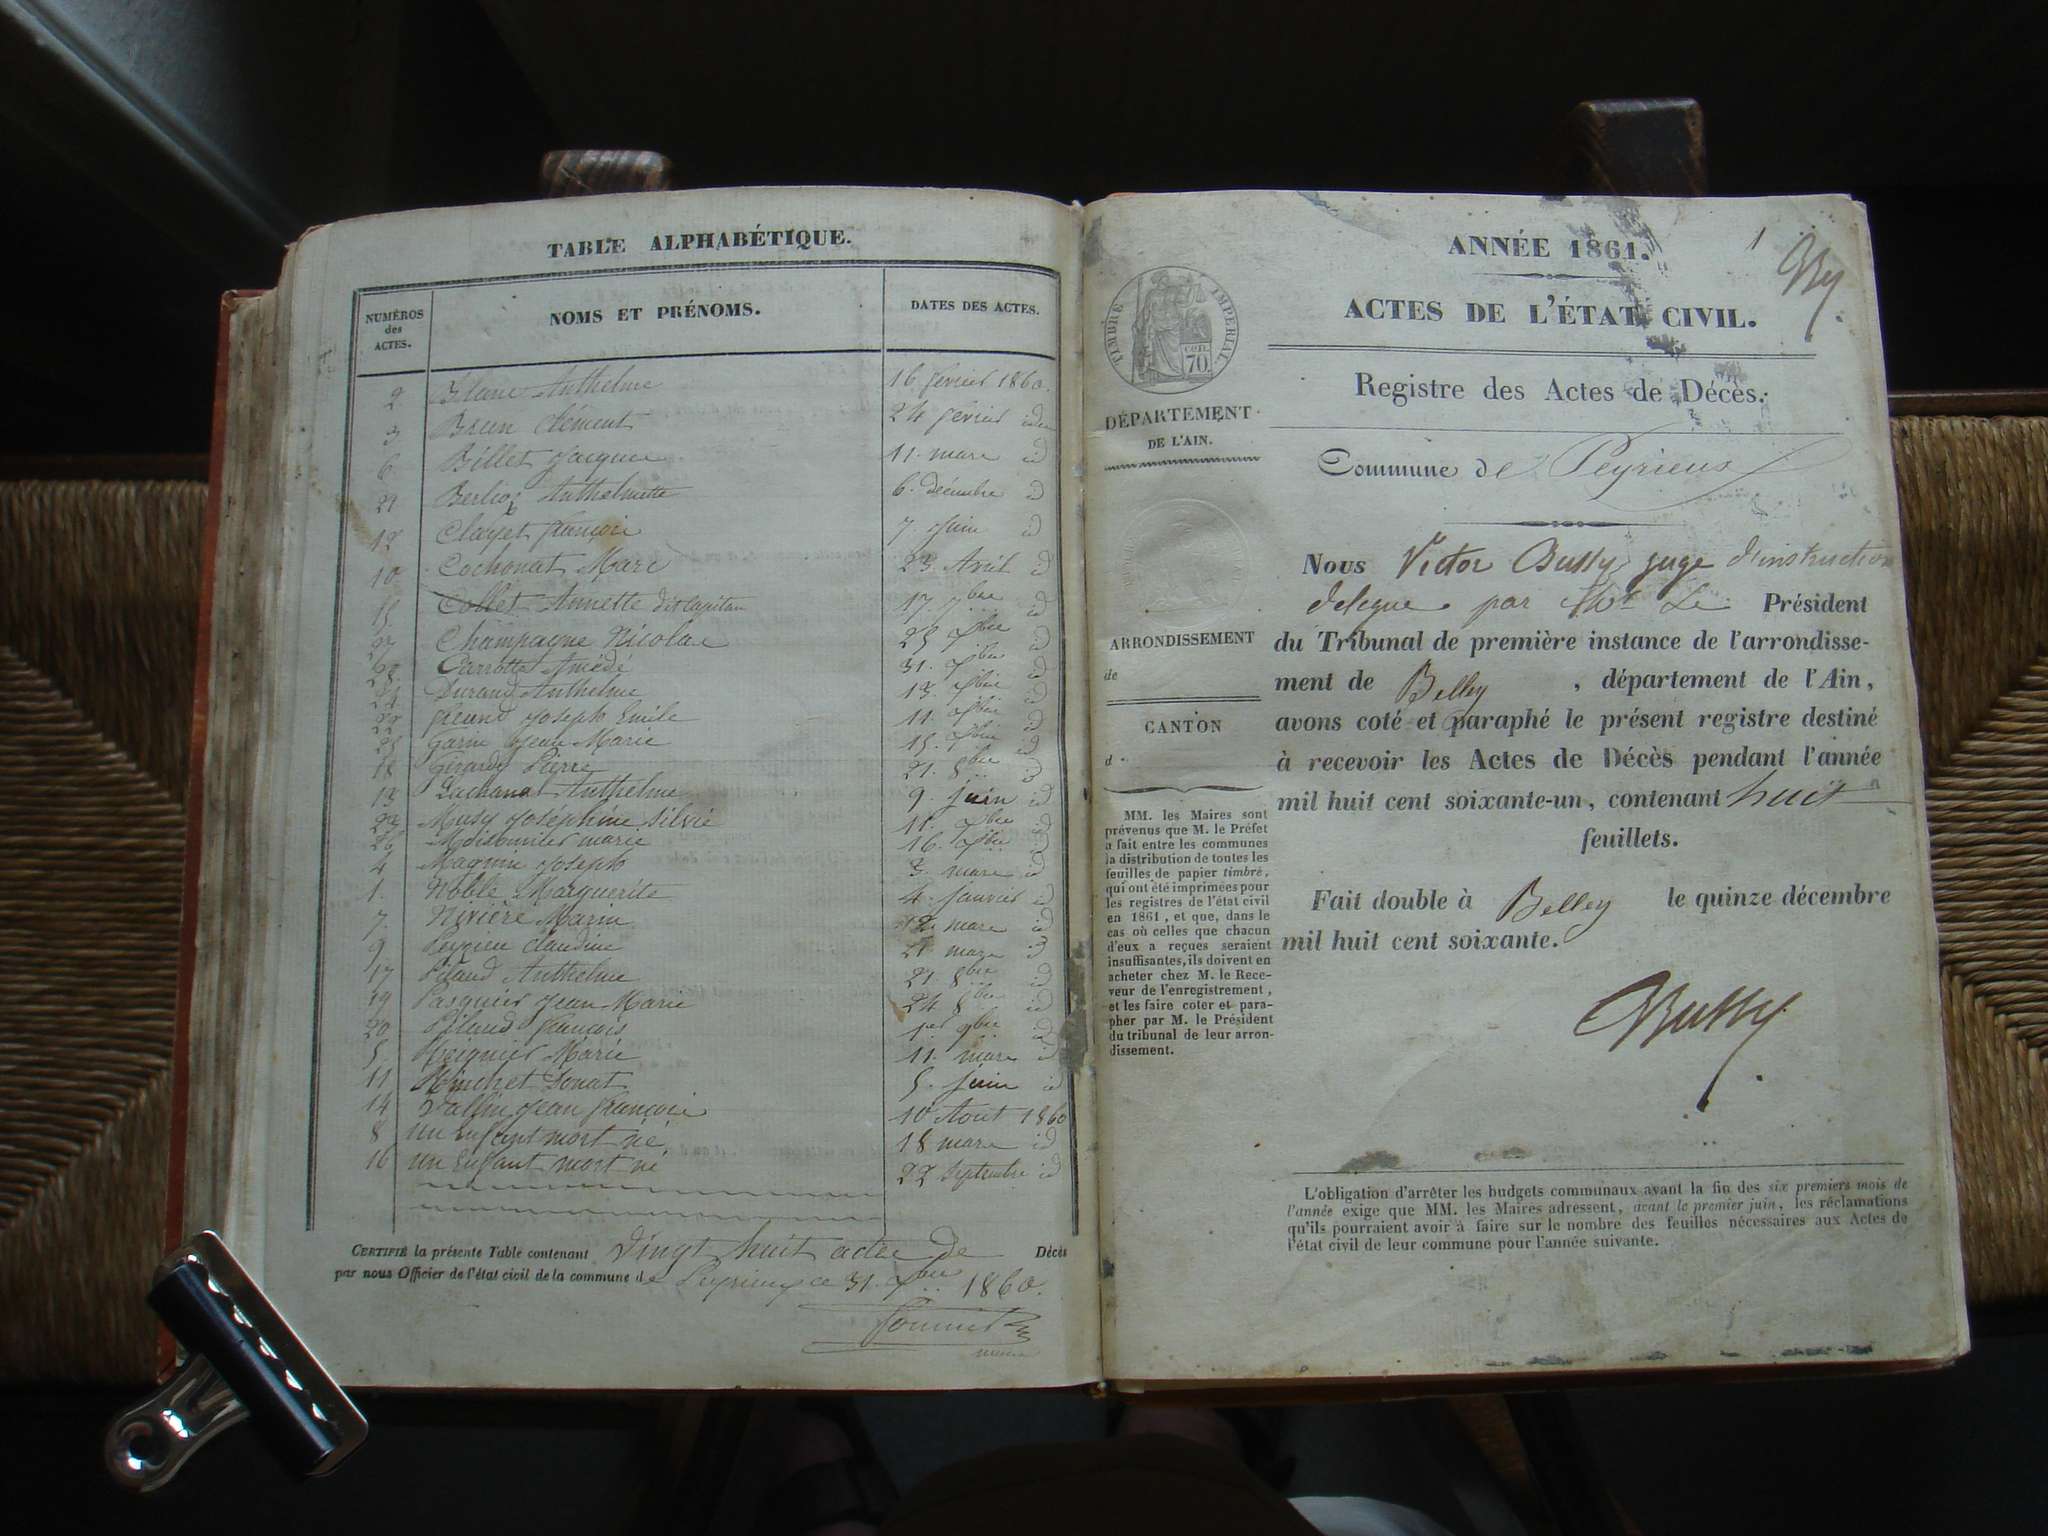 TABLE ALPHABÉTIQUE.
NUMÉROS des ACTES.
NOMS ET PRÉNOMS.
DATES DES ACTES.
2 Blanc Anthelme 16 février 1860.
3 Brun Clément 24 février id
6 Billet Jacques 11. mars id
29 Berlioz Anthelmette 6. décembre id
12 Clayet François 7 Juin id
10 Cochonat Marc 23. Avril id
15 Collet Annette dit Capitan 17. 7bre id
27 Champagne Nicolas 25 Xbre id
28 Carrotte Amédé 31. Xbre id
24 Durand Anthelme 13. Xbre id
22 Joseph Emile 11. Xbre id
25 Garin Jean Marie 15. Xbre id
18 Girardy Pierre 21. 8bre id
13 Lachanat Anthelme 9. juin id
23 Musy Joséphine Silvie 11. Xbre id
26 marie 16. Xbre id
4 Magnin Joseph 3. mars id
1. Noble Marguerite 4. Janvier id
7. Nivière Marin 12 mars id
9 Peyrieu Claudine 21 mars id
17 Pilaud Anthelme 21 8bre id
19 Pasquier Jean-Marie 24 8bre id
20 Pilaud François 1er 9bre id
5 Marie 11. mars id
11 Donat 5. juin id
14 Vallin Jean François 10 Aout 1860
8 un Enfant mort né 18 mars id
16 un Enfant mort né 22 Septembre id
CERTIFIÉ la présente Table contenant Vingt huit actes de Décès
par nous Officier de l'état civil de la commune de Peyrieux ce 31. Xbre 1860.
maire
1
ANNÉE 1861.
ACTES DE L'ÉTAT CIVIL.
TIMBRE IMPÉRIAL
CEN. 70
Registre des Actes de Décès.
DÉPARTEMENT
DE L'AIN.
Commune de Peyrieux
Nous Victor Bussy juge d'instruction
délégué par Mr Le Président
du Tribunal de première instance de l'arrondisse-
ment de Belley, département de l'Ain,
avons coté et paraphé le présent registre destiné
à recevoir les Actes de Décès pendant l'année
mil huit cent soixante-un, contenant huit
feuillets.
Fait double à Belley le quinze décembre
mil huit cent soixante.
Bussy
ARRONDISSEMENT
de
CANTON
d
MM. les Maires sont
prévenus que M. le Préfet
a fait entre les communes
la distribution de toutes les
feuilles de papier timbré,
qui ont été imprimées pour
les registres de l'état civil
en 1861, et que, dans le
cas où celles que chacun
d'eux a reçues seraient
insuffisantes, ils doivent en
acheter chez M. le Rece-
veur de l'enregistrement,
et les faire coter et para-
pher par M. le Président
du tribunal de leur arron-
dissement.
L'obligation d'arrêter les budgets communaux avant la fin des six premiers mois de
l'année exige que MM. les Maires adressent, avant le premier juin, les réclamations
qu'ils pourraient avoir à faire sur le nombre des feuilles nécessaires aux Actes de
l'état civil de leur commune pour l'année suivante.